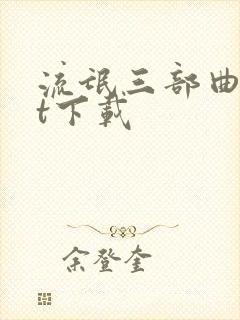 流氓三部曲
t下载
余登奎